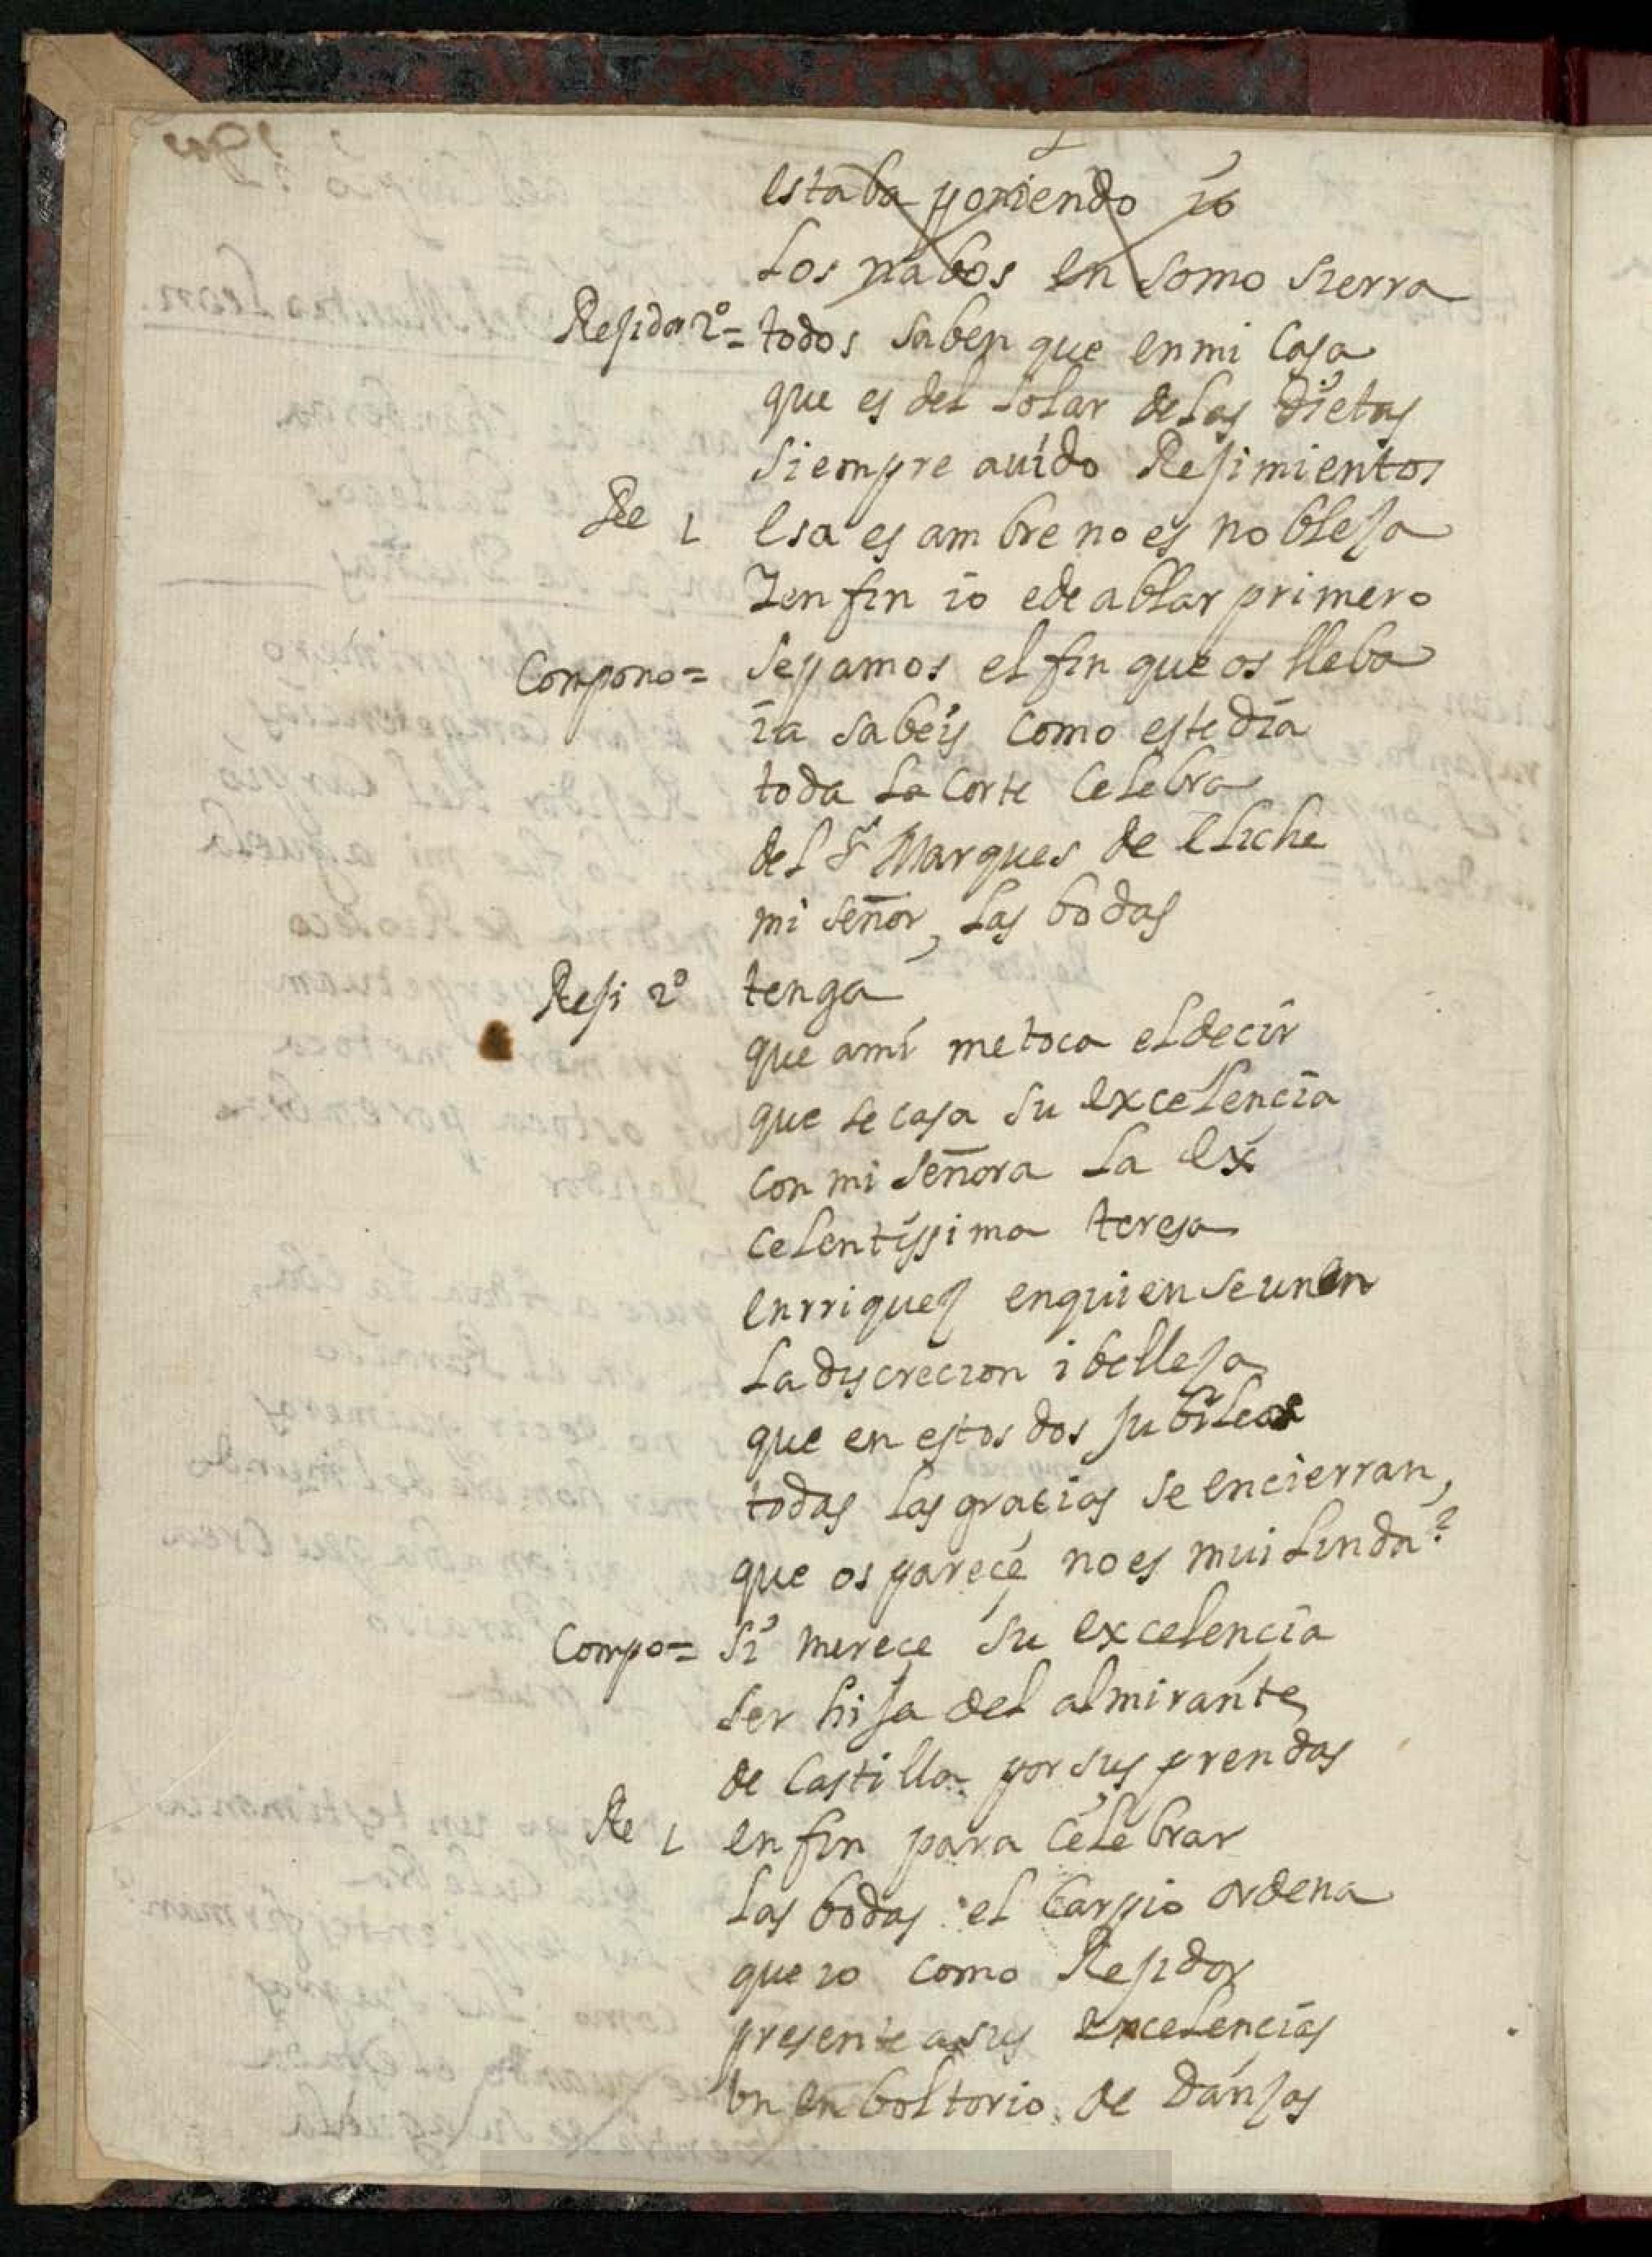 estaba poniendo io
Los nabos en Somo Sierra
Residor 2º= todos saben que en mi Casa
que es del solar de las dietas
Siempre auido Resimientos
Re 1 esa es ambre no es noblesa
Ienfin io e de ablar primero
Compono= sepamos el fin que os lleba
ia sabeis como este dia
toda La Corte Celebra
del Sr Marques de eliche
mi señor, las bodas
Resi 2º tenga
que ami me toca el decir
que se casa su excelencia
con mi señora La ex
celentissima teresa
enrriques en quien se unen
La discrecion i bellesa
que en estos dos jubileos
todas las gracias se encierran,
que os parece, no es mui Linda?
Compo= Si merece su excelencia
ser hija del almirante
de Castilla por sus prendas
Re 1 en fin para celebrar
las bodas el Carpio ordena
que io como Residor
presente a sus excelencias
un enboltorio de dansas